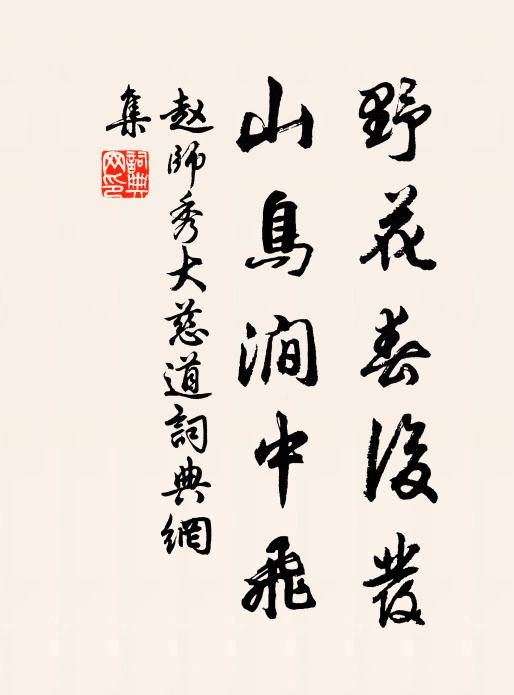 野花春後發
山鳥澗中飛
赵師秀大慈道詞典網
集
詞典
网印